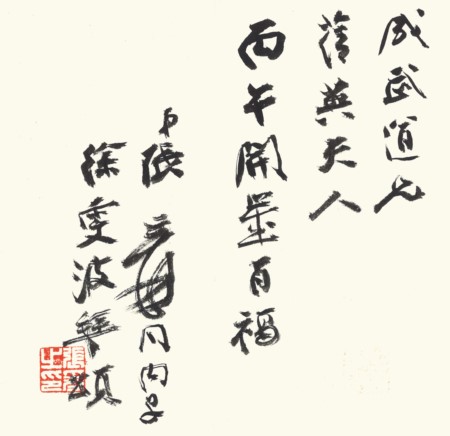 成武道兄
英夫人
丙午開歲百福
弟張爰同內子
徐雯波拜頌
張爰之印